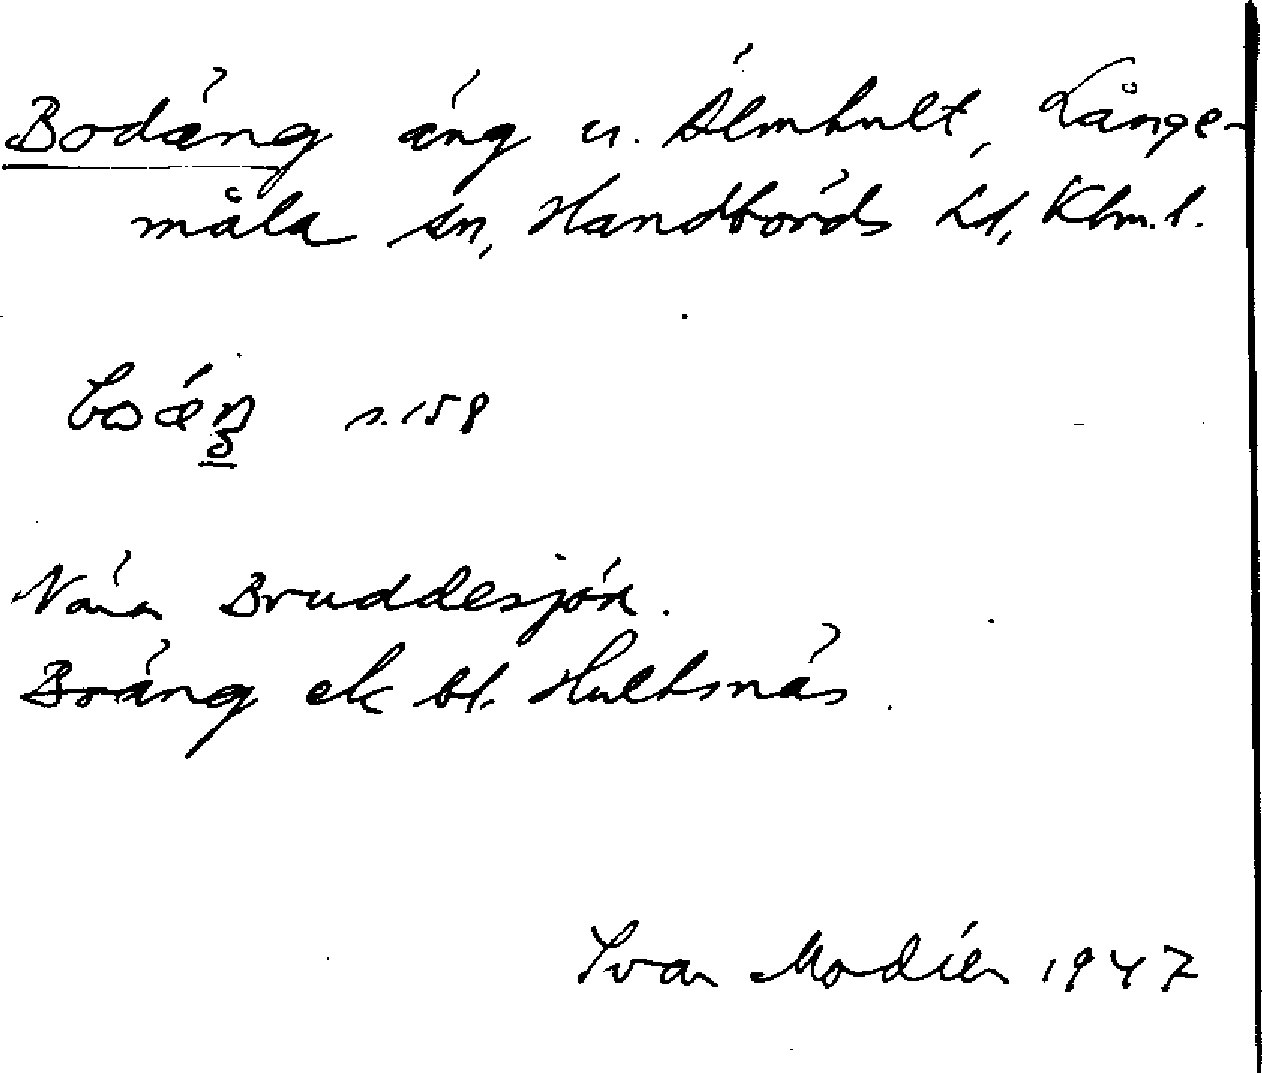 Bodäng äng u. Älmhult, Långe-
måla sn, Handbörds hd, Klm. l.
s. 158
Nära Bruddesjön.
Boäng ek bl. Hultsnäs.
Ivar Modéer 1947